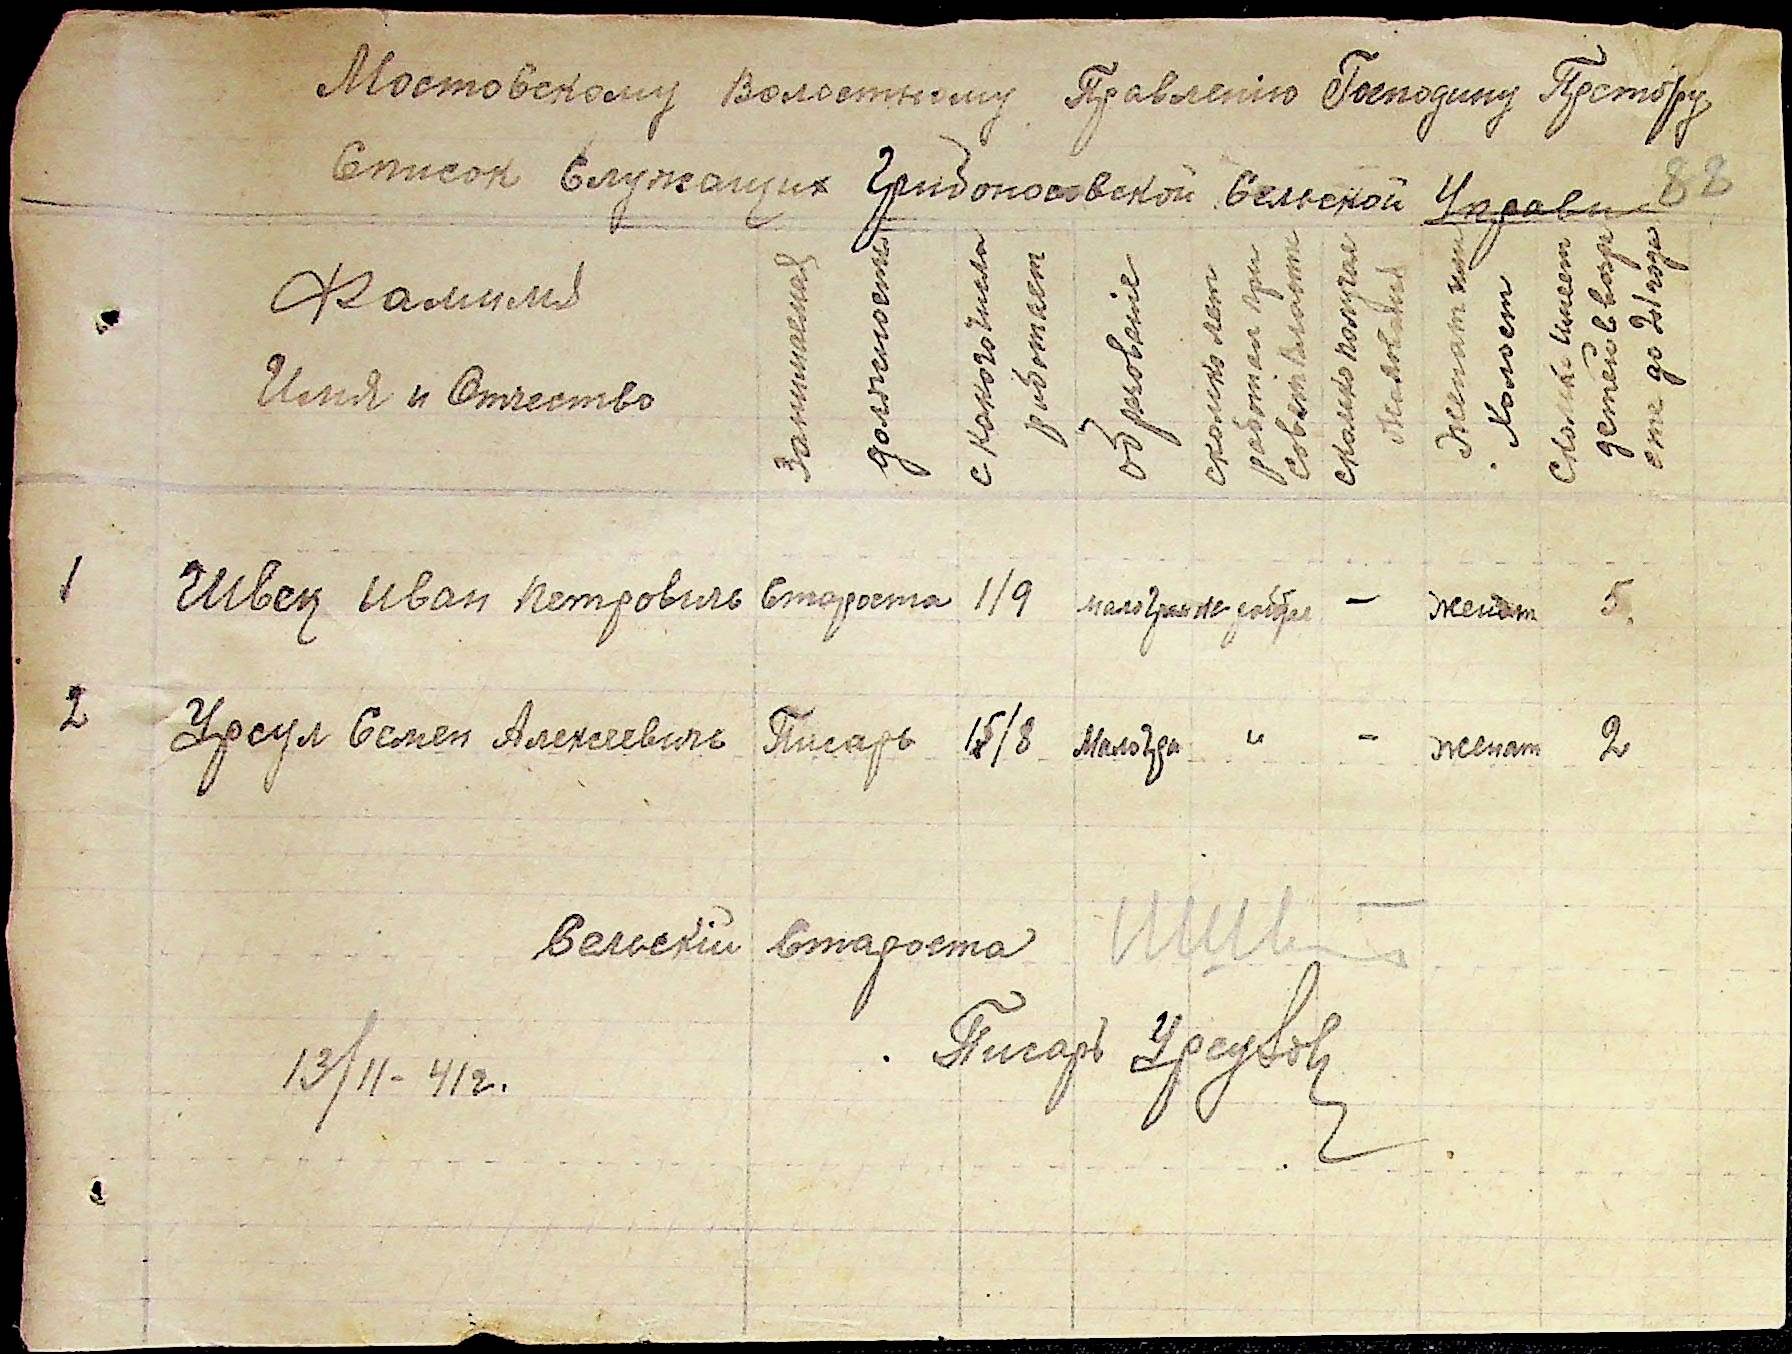 Мостовскому Волостному Правлению Господину Претору
Список Служащих Грибоносовской Сельской Управы
88
Фамилия
Имя и Отчество
Занимаемая
должность
с какого числа
работает
образование
сколко лет
работал при
совет. власти
сколко получал
жалования
Женат или
холост
Сколко имеет
детей в возра
сте до 21 года
1 Швец Иван Петровичь Староста 1/9 малогра не работал — женат 5.
2 Урсул Семен Алексеевичь Писарь 15/8 малогра " - женат 2
Сельскiй Староста
Писарь
13/11-41г.